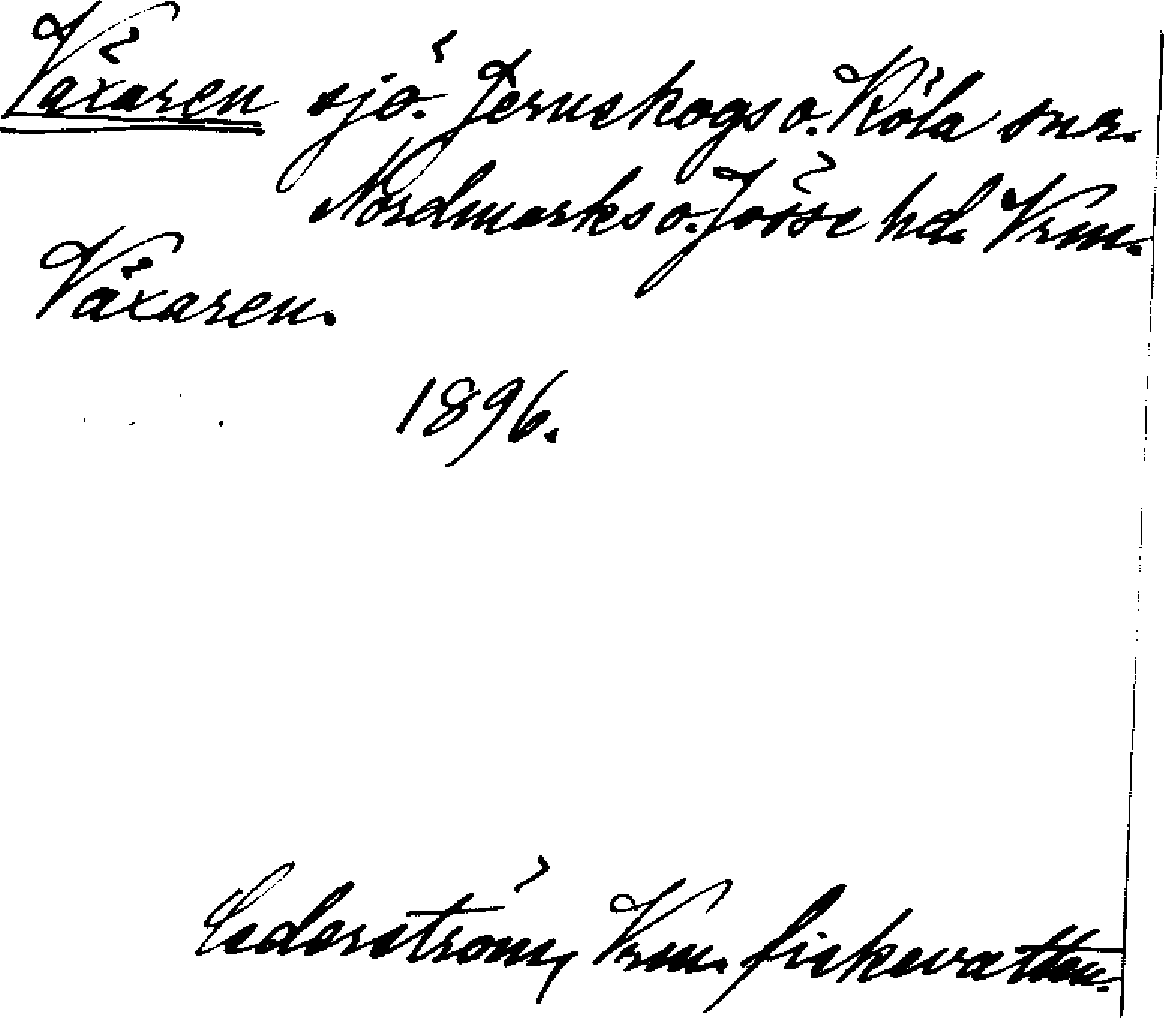 Växaren sjö. Jernskogs o. Köla snr.
Nordmarks o. Jösse hd. Vrm.
Växaren.
1896.
Cederström, Vrm. fiskevatten.